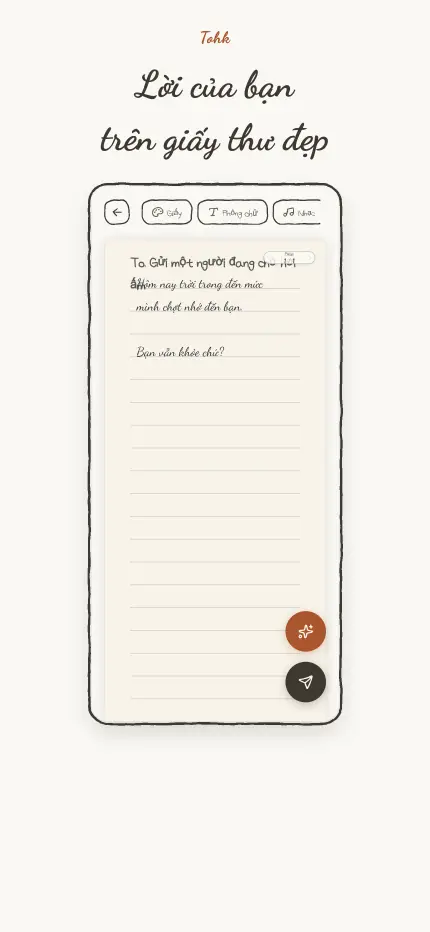 Tohk
Lời của bạn
trên giấy thư đẹp
Giấy
Phông chữ
Nhạc
To. Gửi một người đang
Hôm nay trời trong đến mức
mình chợt nhớ đến bạn.
Bạn vẫn khỏe chứ?